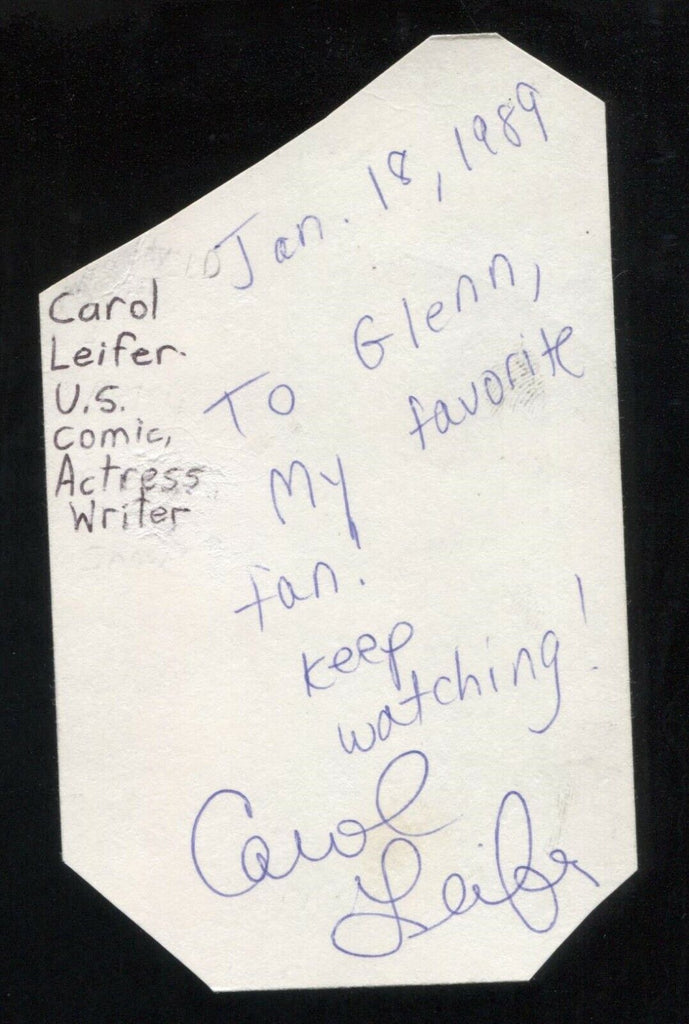 Jan. 18, 1989
Carol
Leifer.
U.S.
Comic,
Actress
Writer
To Glenn,
My favorite
fan!
keep
watching!
Carol
Leifer